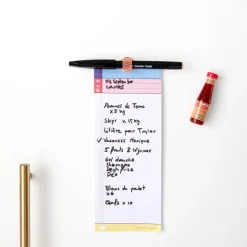 du Septembre
courses
Pommes de Terre
x 3 kg
Skyr x 15 kg
Litière pour Taylor
✓ Vacances Mexique
5 fruits & légumes
Gel douche
Shampoo
Dentifrice
Déo
Blancs de poulet
x6
Oeufs x 10